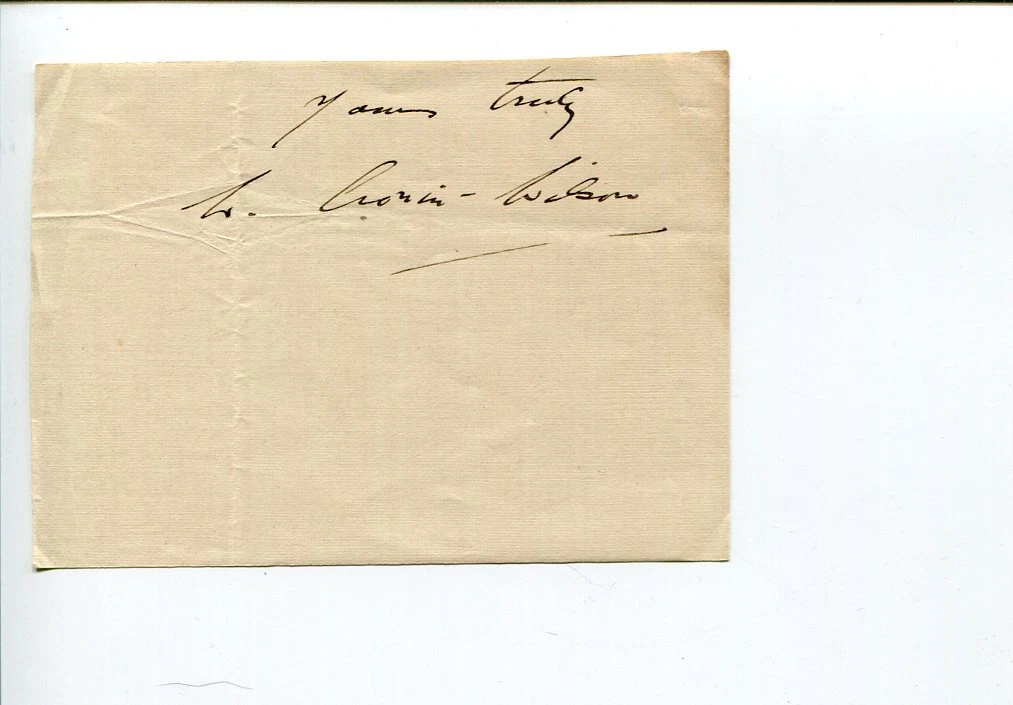 Yours truly
W. Cronin-Wilson